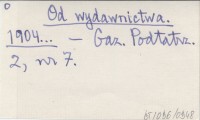 Od wydawnictwa.
1904... — Gaz. Podtatrz.
2, nr 7.